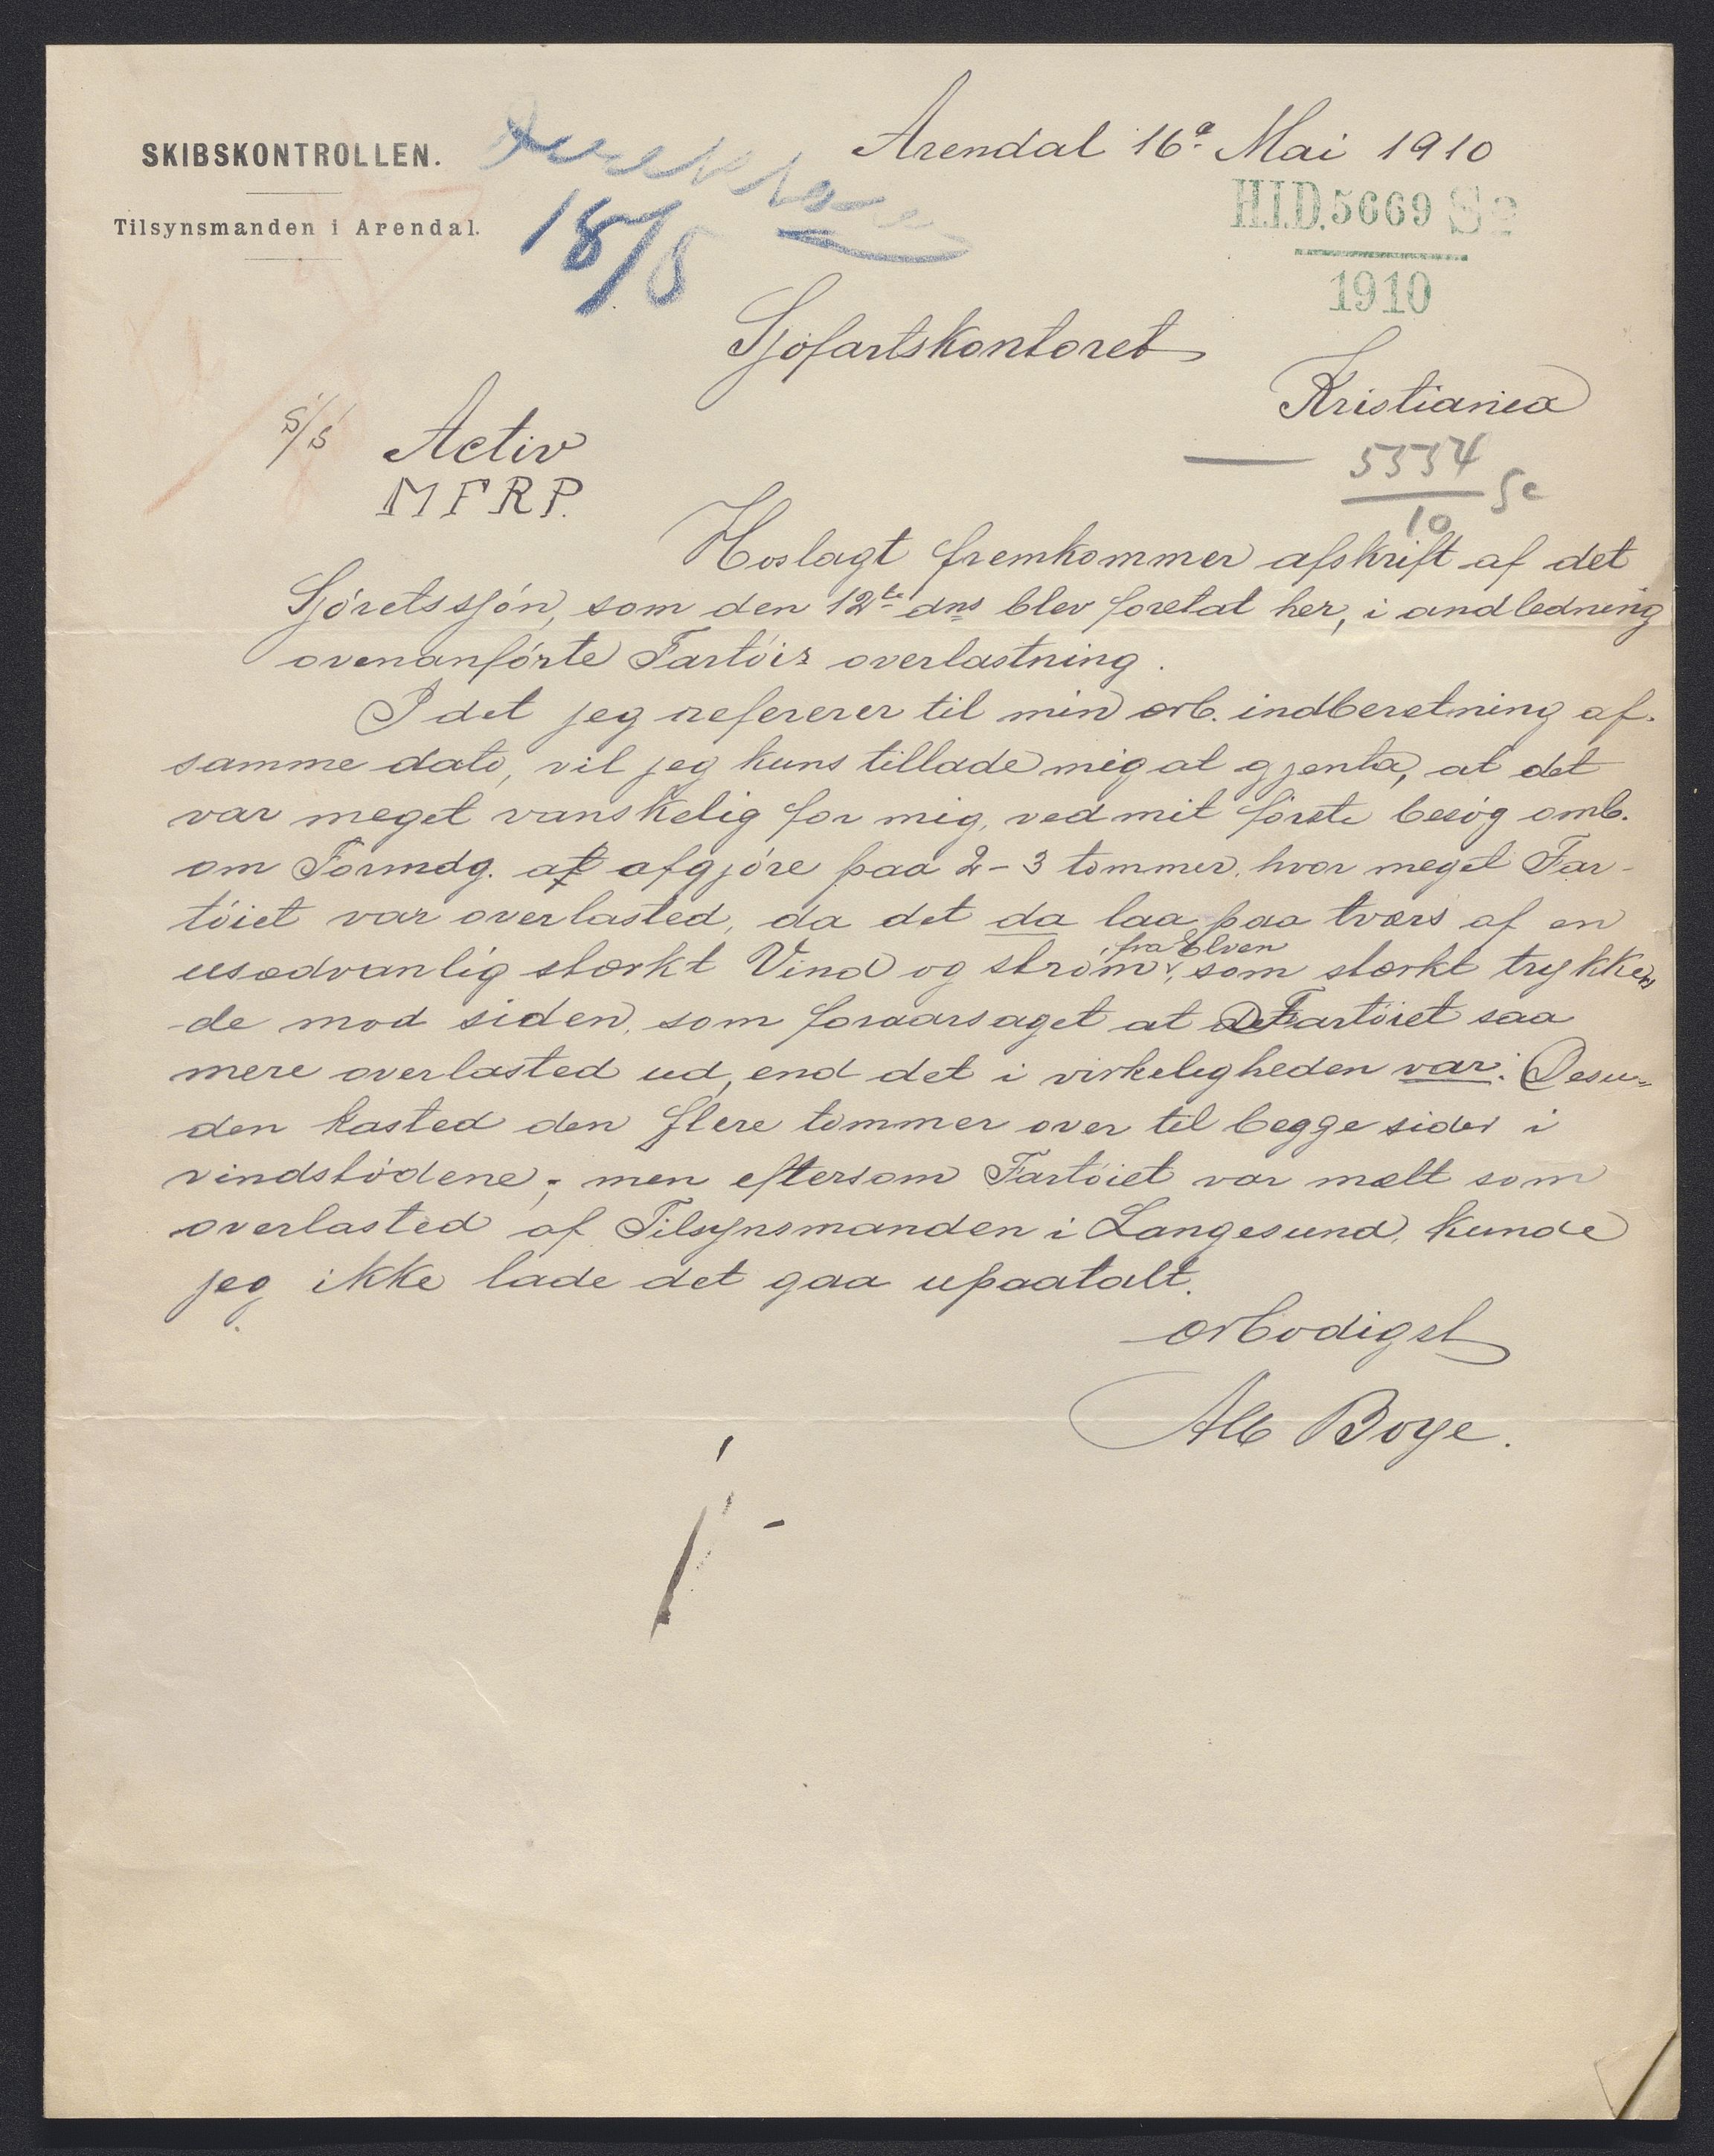 SKIBSKONTROLLEN.
Tilsynsmanden i Arendal.
18/5
Arendal 16d Mai 1910
H.I.D. 5669 Se
1910
Sjöfartskontoret
Kristiania
5334 Se
10
S/S Activ
MFRP.
Hoslagt fremkommer afskrift af det
Sjöretssjön, som den 12te dns blev foretat her, i andledning
ovenanförte Fartöis overlastning.
I det jeg refererer til min ærb. indberetning af
samme dato, vil jeg kuns tillade mig at gjenta, at det
var meget vanskelig for mig, ved mit förste besög omb.
om Formdg. at afgjöre paa 2-3 tommer, hvor meget Far-
töiet var overlasted, da det da laa paa tværs af en
usædvanlig stærkt Vind og ström fra Elven, som stærkt trykken
de mod siden, som foraarsaget at Fartöiet saa
mere overlasted ud, end det i virkeligheden var. Desu-
den kasted den flere tommer over til begge sider i
vindstödene; men eftersom Fartöiet var mælt som
overlasted af Tilsynsmanden i Langesund, kunde
jeg ikke lade det gaa upaatalt.
ærbödigst
Alb Boye.